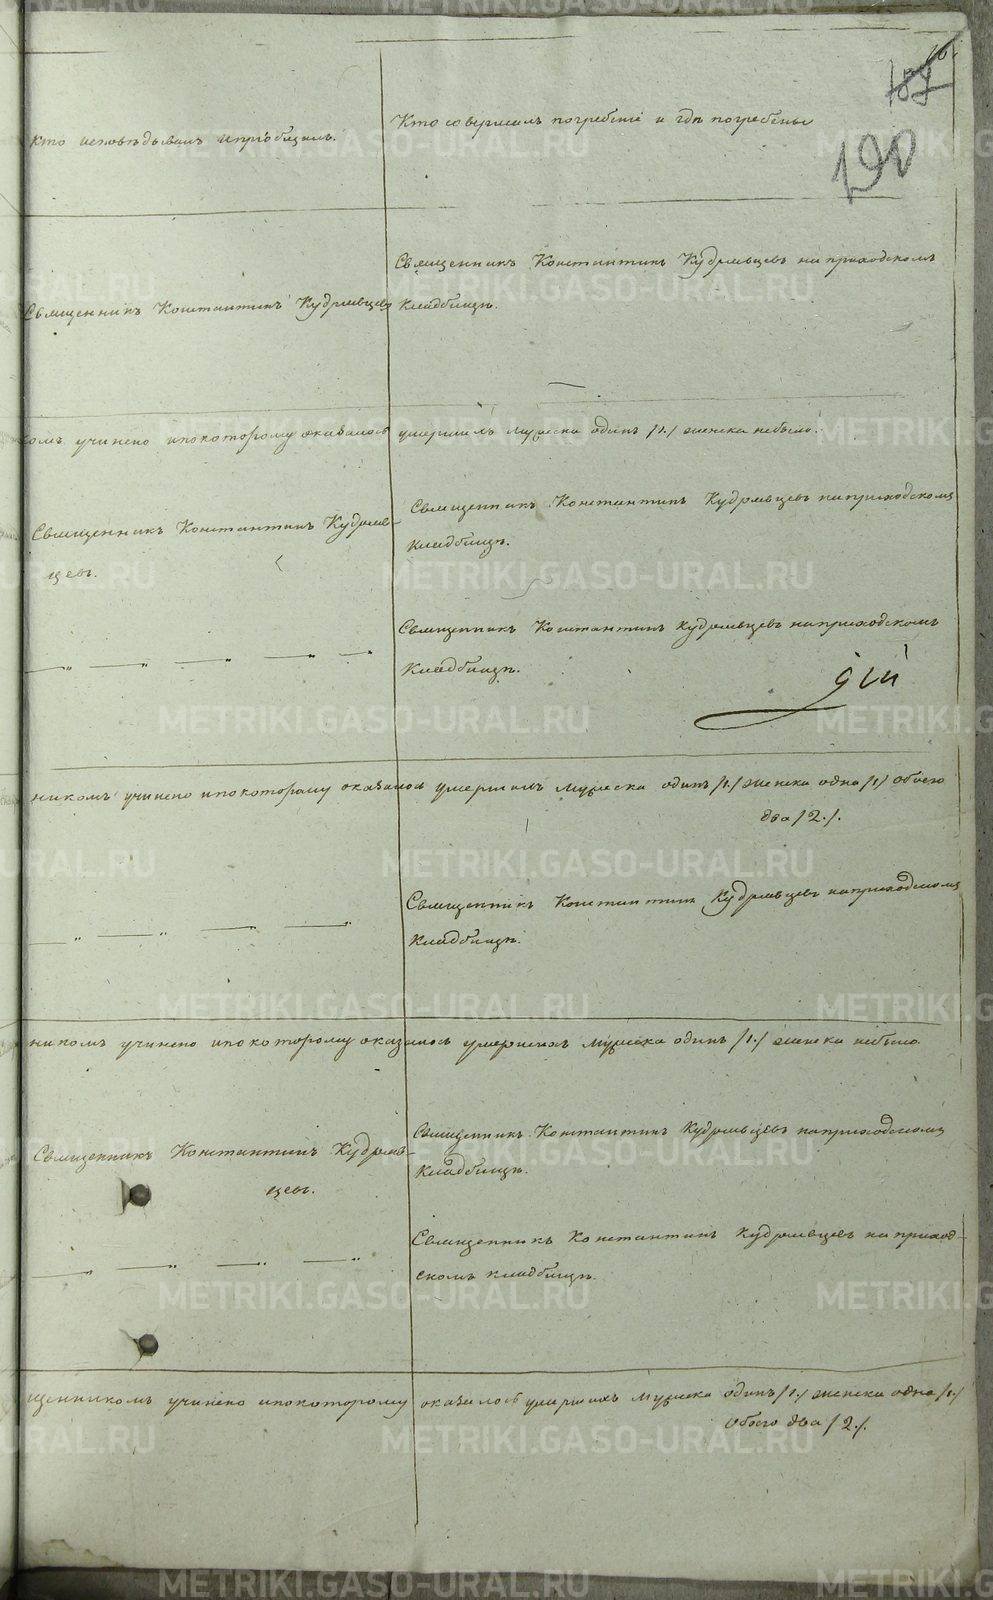 190
кто исповѣдывалъ и пріобщалъ.
Кто совершалъ погребеніе и гдѣ погребены
Священникъ Константинъ Кудрявцевъ
Священникъ Константинъ Кудрявцевъ на приходскомъ
кладбищѣ.
комъ учинено и по которому оказалось умершихъ мужеска одинъ /1./ женска небыло.
Священникъ Константинъ Кудряв-
цевъ.
Священникъ Константинъ Кудрявцевъ на приходскомъ
кладбищѣ.
Священникъ Константинъ Кудрявцевъ на приходскомъ
кладбищѣ.
никомъ учинено и по которому оказалось умершихъ мужеска одинъ /1./ женска одна /1/ обоего
два /2./.
Священникъ Константинъ Кудрявцевъ на приходскомъ
кладбищѣ.
никомъ учинено и по которому оказалось умершихъ мужеска одинъ /1./ женска небыло
Священникъ Константинъ Кудряв-
цевъ.
Священникъ Константинъ Кудрявцевъ на приходскомъ
кладбищѣ.
Священникъ Константинъ Кудрявцевъ на приход-
скомъ кладбищѣ.
щенникомъ учинено и по которому оказалось умершихъ мужеска одинъ /1./ женска одна /1./
обоего два /2./.
METRIKI.GASO-URAL.RU